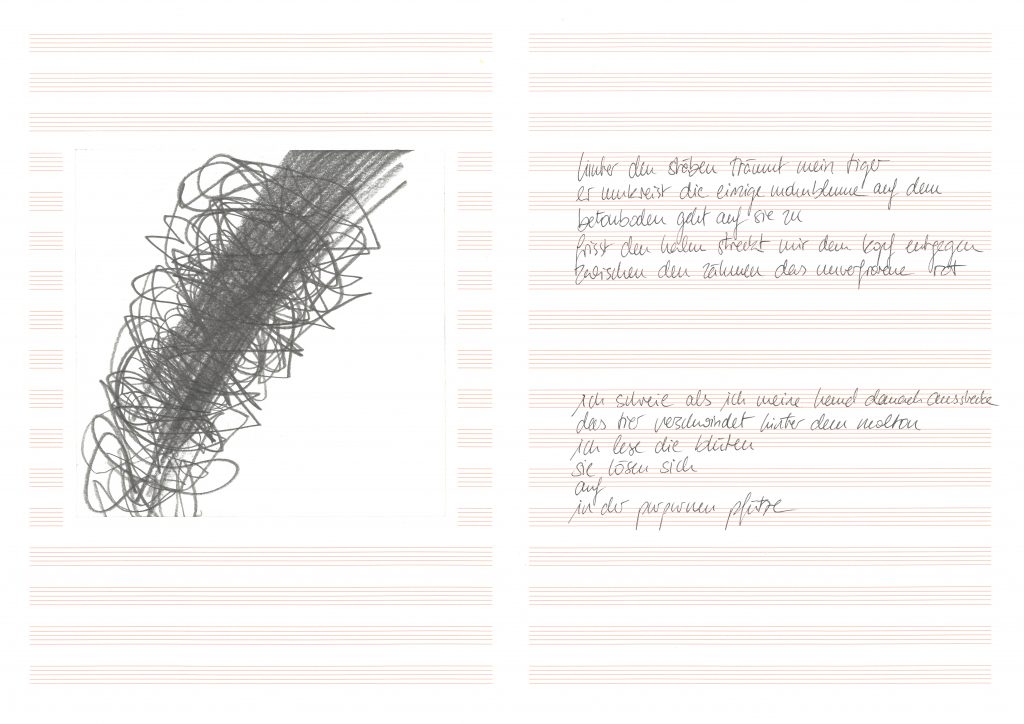 hinter den stäben träumt mein tiger
er umkreist die einzige mohnblume auf dem
betonboden geht auf sie zu
frisst den halm streckt mir den kopf entgegen
zwischen den zähnen das unverfrorene rot
ich schreie als ich meine hand danach ausstrecke
das tier verschwindet hinter dem molton
ich lese die blüten
sie lösen sich
auf
in der purpurnen pfütze